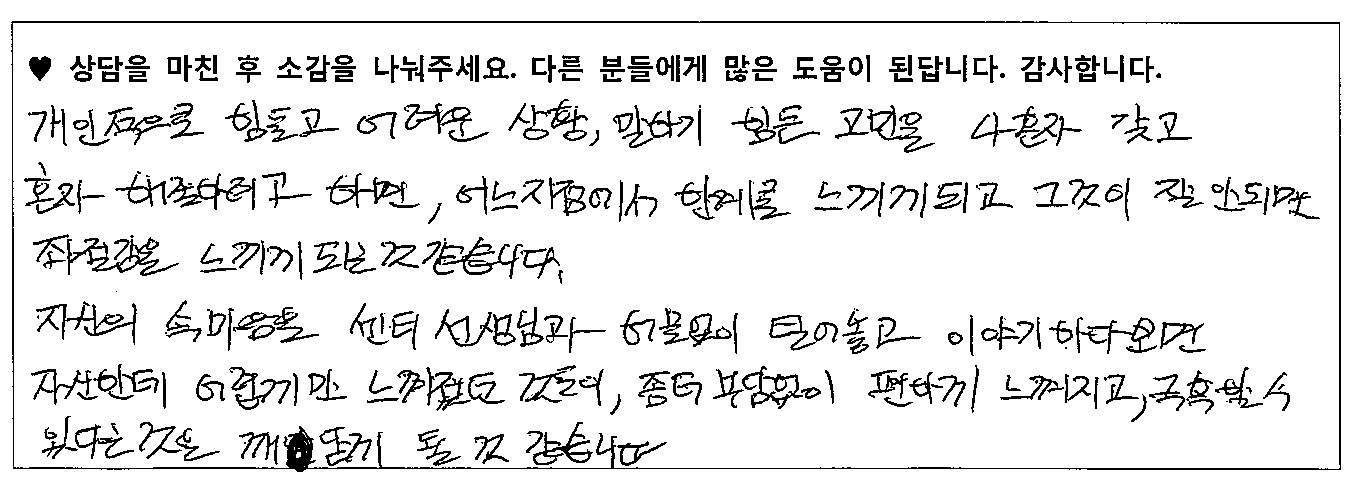 ♥ 상담을 마친 후 소감을 나눠주세요. 다른 분들에게 많은 도움이 된답니다. 감사합니다.
개인적으로 힘들고 어려운 상황, 말하기 힘든 고민을 나 혼자 갖고
혼자 해결하려고 하면, 어느지점에서 한계를 느끼게되고 그것이 잘 안되면
좌절감을 느끼게 되는것 같습니다.
자신의 속마음을 센터 선생님과 허물없이 털어놓고 이야기 하다보면
자신한테 어렵게만 느껴졌던 것들이, 좀더 부담없이 편하게 느껴지고, 극복할 수
있다는것을 깨닫게 될 것 같습니다